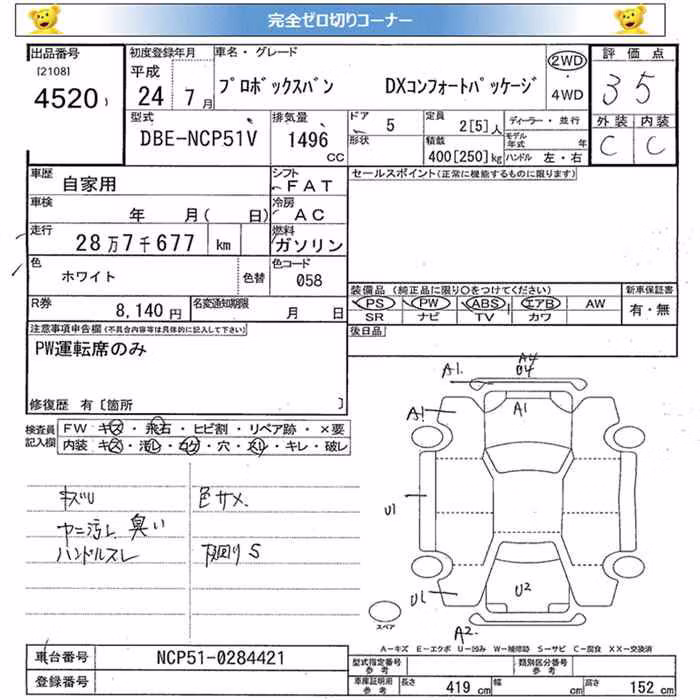 完全ゼロ切りコーナー
出品番号 初度登録年月 車名・グレード 2WD 評価点
[2108] 平成
4520 24 7月 プロボックスバン DXコンフォートパッケージ ・4WD 3 5
型式 排気量 ドア 定員 ディーラー・並行 外装 内装
DBE-NCP51V 1496 CC 5 2[5]人 モデル年式 年 C C
形状 積載 400[250]kg ハンドル 左・右
車歴 自家用 シフト FAT セールスポイント(正常に機能するものに限ります)
車検 年 月( 日) 冷房 AC
走行 28万7千677 km 燃料 ガソリン
色 ホワイト 色替 色コード 058
装備品 (純正品に限り○をつけてください) 新車保証書
R券 8,140円 名変通知期限 月 日
PS PW ABS エアB AW 有・無
SR ナビ TV カワ
注意事項申告欄(不具合内容等は具体的に記入して下さい) 後日品
PW運転席のみ
修復歴 有〔箇所 〕
検査員記入欄 FW キズ・飛石・ヒビ割・リペア跡・×要
内装 キズ・汚レ・コゲ・穴・スレ・キレ・破レ
キズU 色サメ
ヤニ汚レ 臭い
ハンドルスレ 下回りS
A1. A4
U4
A1 A1
U1
U1 U2
A2.
スペア
A-キズ E-エクボ U-凹み W-補修跡 S-サビ C-腐食 XX-交換済
車台番号 NCP51-0284421 型式指定番号 参考 類別区分番号 参考
登録番号 車庫証明用 参考 長さ 419 cm 幅 cm 高さ 152 cm